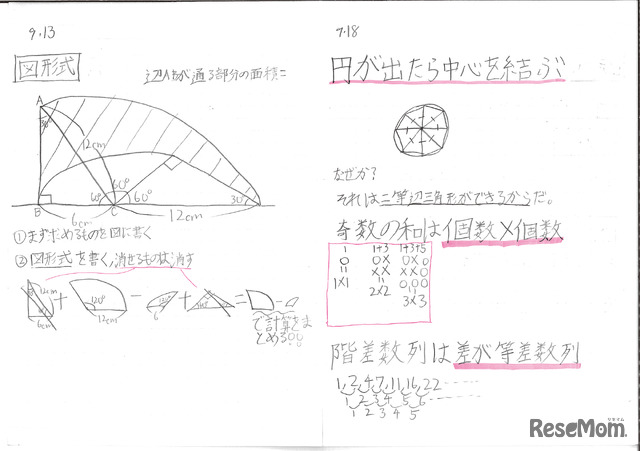 9.13
図形式
辺ACが通る部分の面積=
A
30°
12cm
60°
60°
60°
30°
B
C
6cm
12cm
①まずもとめるものを図に書く
②図形式を書く,消せるものは消す
12cm
6cm
+
120°
12cm
-
120°
6
+
=
-
で計算をま
とめる
7.18
円が出たら中心を結ぶ
なぜか?
それは二等辺三角形ができるからだ。
奇数の和は個数×個数
1 1+3 1+3+5
1×1
2×2
3×3
階差数列は差が等差数列
1,2,4,7,11,16,22
1 2 3 4 5 6
1 2 3 4 5
リセマム
ReseMom.